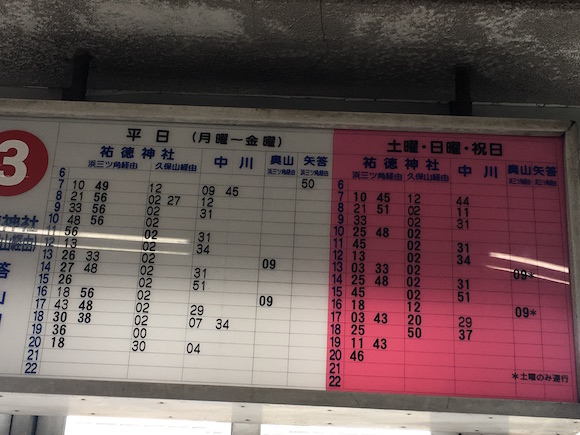 3
平日 (月曜～金曜)
祐徳神社 中川 奥山 矢答
浜三ツ角経由 久保山経由 浜三ツ角経由 浜三ツ角経由
6 50
7 10 49 12 09 45
8 21 56 02 27 12
9 33 56 02 31
10 48 56 02
11 56 02 31
12 13 02 34
13 26 33 02 09
14 27 48 02 31
15 26 02 51
16 18 56 02 09
17 43 48 02 29
18 30 38 02 07 34
19 36 00
20 18 30 04
21
22
土曜・日曜・祝日
祐徳神社 中川 奥山 矢答
浜三ツ角経由 久保山経由
6
7 10 45 12 44
8 21 51 02 11
9 02 31
10 25 48 02
11 45 02 31
12 13 02 34
13 03 33 02 09*
14 25 48 02 31
15 45 02 51
16 18 12 09*
17 03 43 20 29
18 25 50 37
19 11 43
20 46
21
22
*土曜のみ運行
神社
山経由
答
山